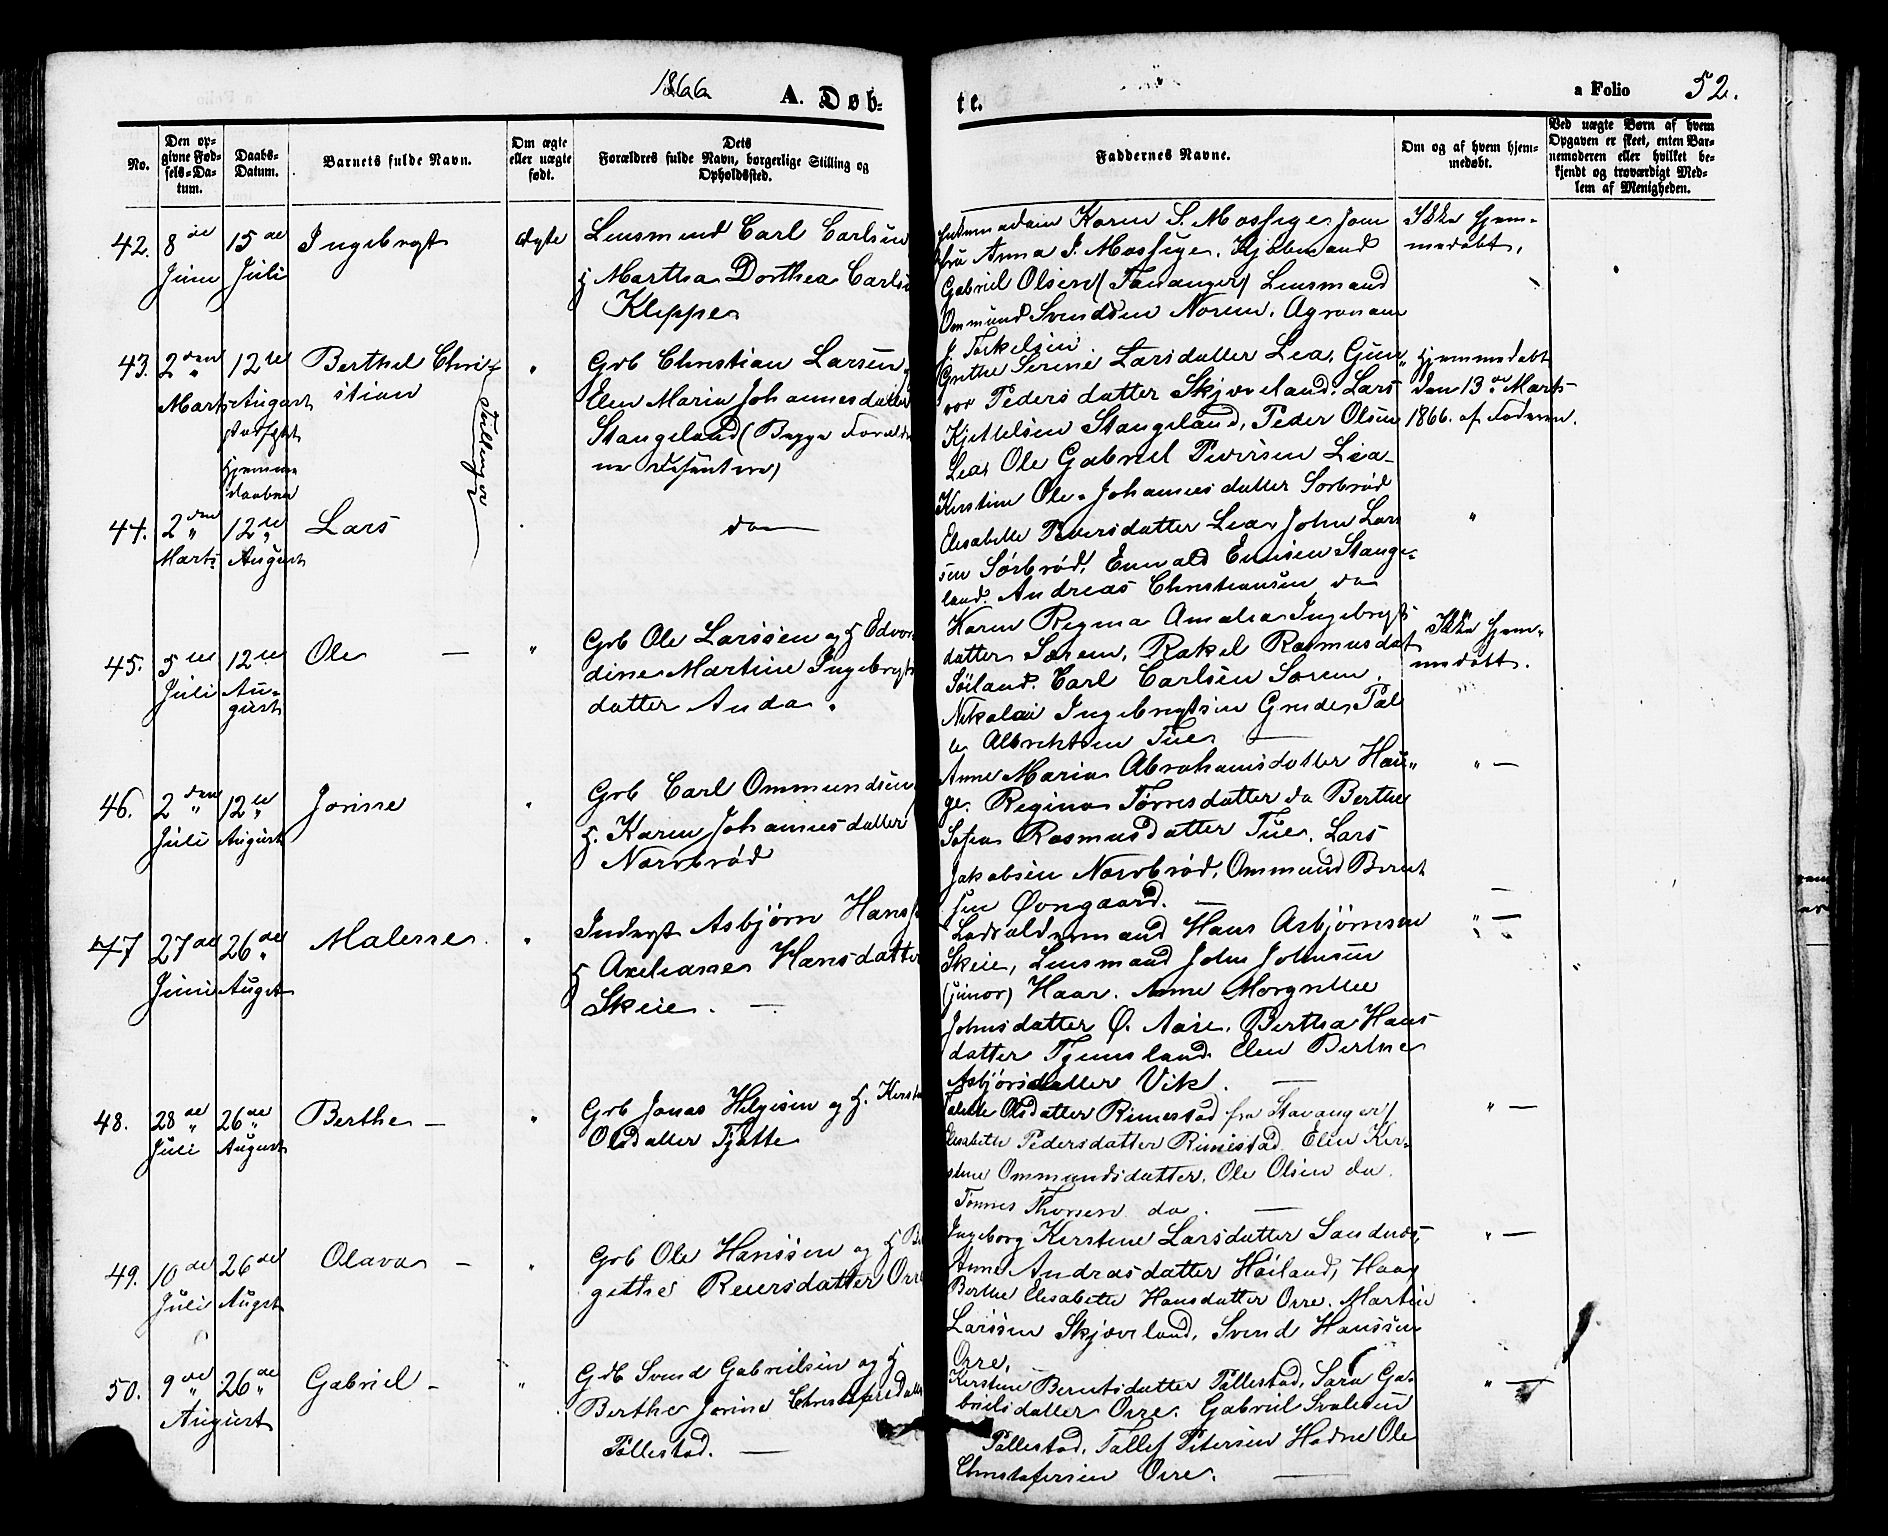 1866 A. Døb-
te. a Folio 52.
No.
Den op-
givne Fød-
sels-Da-
tum.
Daabs-
Datum.
Barnets fulde Navn.
Om ægte
eller uægte
født.
Dets
Forældres fulde Navn, borgerlige Stilling og
Opholdssted.
Faddernes Navne.
Om og af hvem hjem-
medøbt.
Ved uægte Børn af hvem
Opgaven er skeet, enten Bar-
nemoderen eller hvilket be-
kjendt og troværdigt Med-
lem af Menigheden.
42. 8de
Juni
15de
Juli
Ingebregt
Ægte
Lensmand Carl Carlsen
H Martha Dorthea Carls
Kleppe
Karen S. Mossige. Jom
fru Anna J. Mossige. Kjøbmand
Gabriel Olsen (Tananger) Lensmand
Ommund Svendsen Norem. Agronom
J. Torkelsen.
Ikke hjem-
medøbt.
43. 2den
Marts
12te
August
Hjemme
daaben
Berthel Chri-
stian
Tvillinger
"
Grb Christian Larsen
Elen Maria Johannesdatter
Stangeland (Begge Foreldre
ne Dissentere)
Grethe Serine Larsdatter Lea, Gun
vor Pedersdatter Skjæveland. Lars
Kjettelsen Stangeland, Peder Olsen
Lea, Ole Gabriel Peersen Lea
Hjemmedøbt
den 13de Marts
1866. af Faderen.
44. 2den
Marts
12te
August
Lars
do
Kirstine Ole Johannesdatter Sørbrød
Elisabeth Peersdatter Lea, John Lar
sen Sørbrød, Enevald Ennisen Stange-
land. Andreas Christiansen do
"
45. 5te
Juli
12te
Au-
gust
Ole —
"
Grb Ole Larssen og H Edvar
dine Martine Ingebregts
datter Anda.
Karen Regina Amalia Ingebregts
datter Sørem, Rakel Rasmusdat
Søiland. Carl Carlsen Sørem.
Nikolai Ingebregtsen Grude, Pal
le Albrektsen Tue —
Ikke hjem-
medøbt.
46. 2den
Juli
12te
August
Jorine
"
Grb Carl Ommundsen
H. Karen Johannesdatter
Norebrød
Anne Maria Abrahamsdatter Hau
ge. Regina Tørresdatter do Berthe
Sofia Rasmusdatter Tue. Lars
Jakobsen Norebrød, Ommund Bernt
sen Øvregaard. —
" —
47 27de
Juni
26de
Augst
Malene
"
Inderst Asbjørn Hans
H Axeliane Hansdatter
Skeie. —
Ladsoldermand Hans Asbjørnsen
Skeie, Lensmand John Johnsen
(junior) Haar. Anne Margrethe
Johnsdatter Ø. Aare. Bertha Hans
datter Tjemsland. Elen Bertine
Asbjørnsdatter Vik. —
" —
48. 28de
Juli
26de
August
Berthe —
"
Grb Jonas Helgesen og H. Kirst
Olsdatter Tjøtte
Talette Olsdatter Rimestad fra Stavanger/
Elisabethe Pedersdatter Rimestad. Elen Kir-
stine Ommundsdatter. Ole Olsen do.
Tønnes Thorsen do. —
" —
49. 10de
Juli
26de
Augst
Olava —
"
Grb Ole Hanssen og H B
githe Reiersdatter Orre
Ingeborg Kirstine Larsdatter Sandnes,
Anne Andreasdatter Høiland, Haa
Berthe Elisabethe Hansdatter Orre. Martin
Larssen Skjæveland. Svend Hanssen
Orre.
" —
50. 9de
August
26de
Gabriel —
"
Grb Svend Gabrielsen og H
Berthe Jorine Christofersdatter
Pollestad. —
Kirstine Berntsdatter Pollestad, Sara Ga-
brielsdatter Orre. Gabriel Svalesen
Pollestad. Tollef Petersen Hodne Ole
Christofersen Orre. —
" —